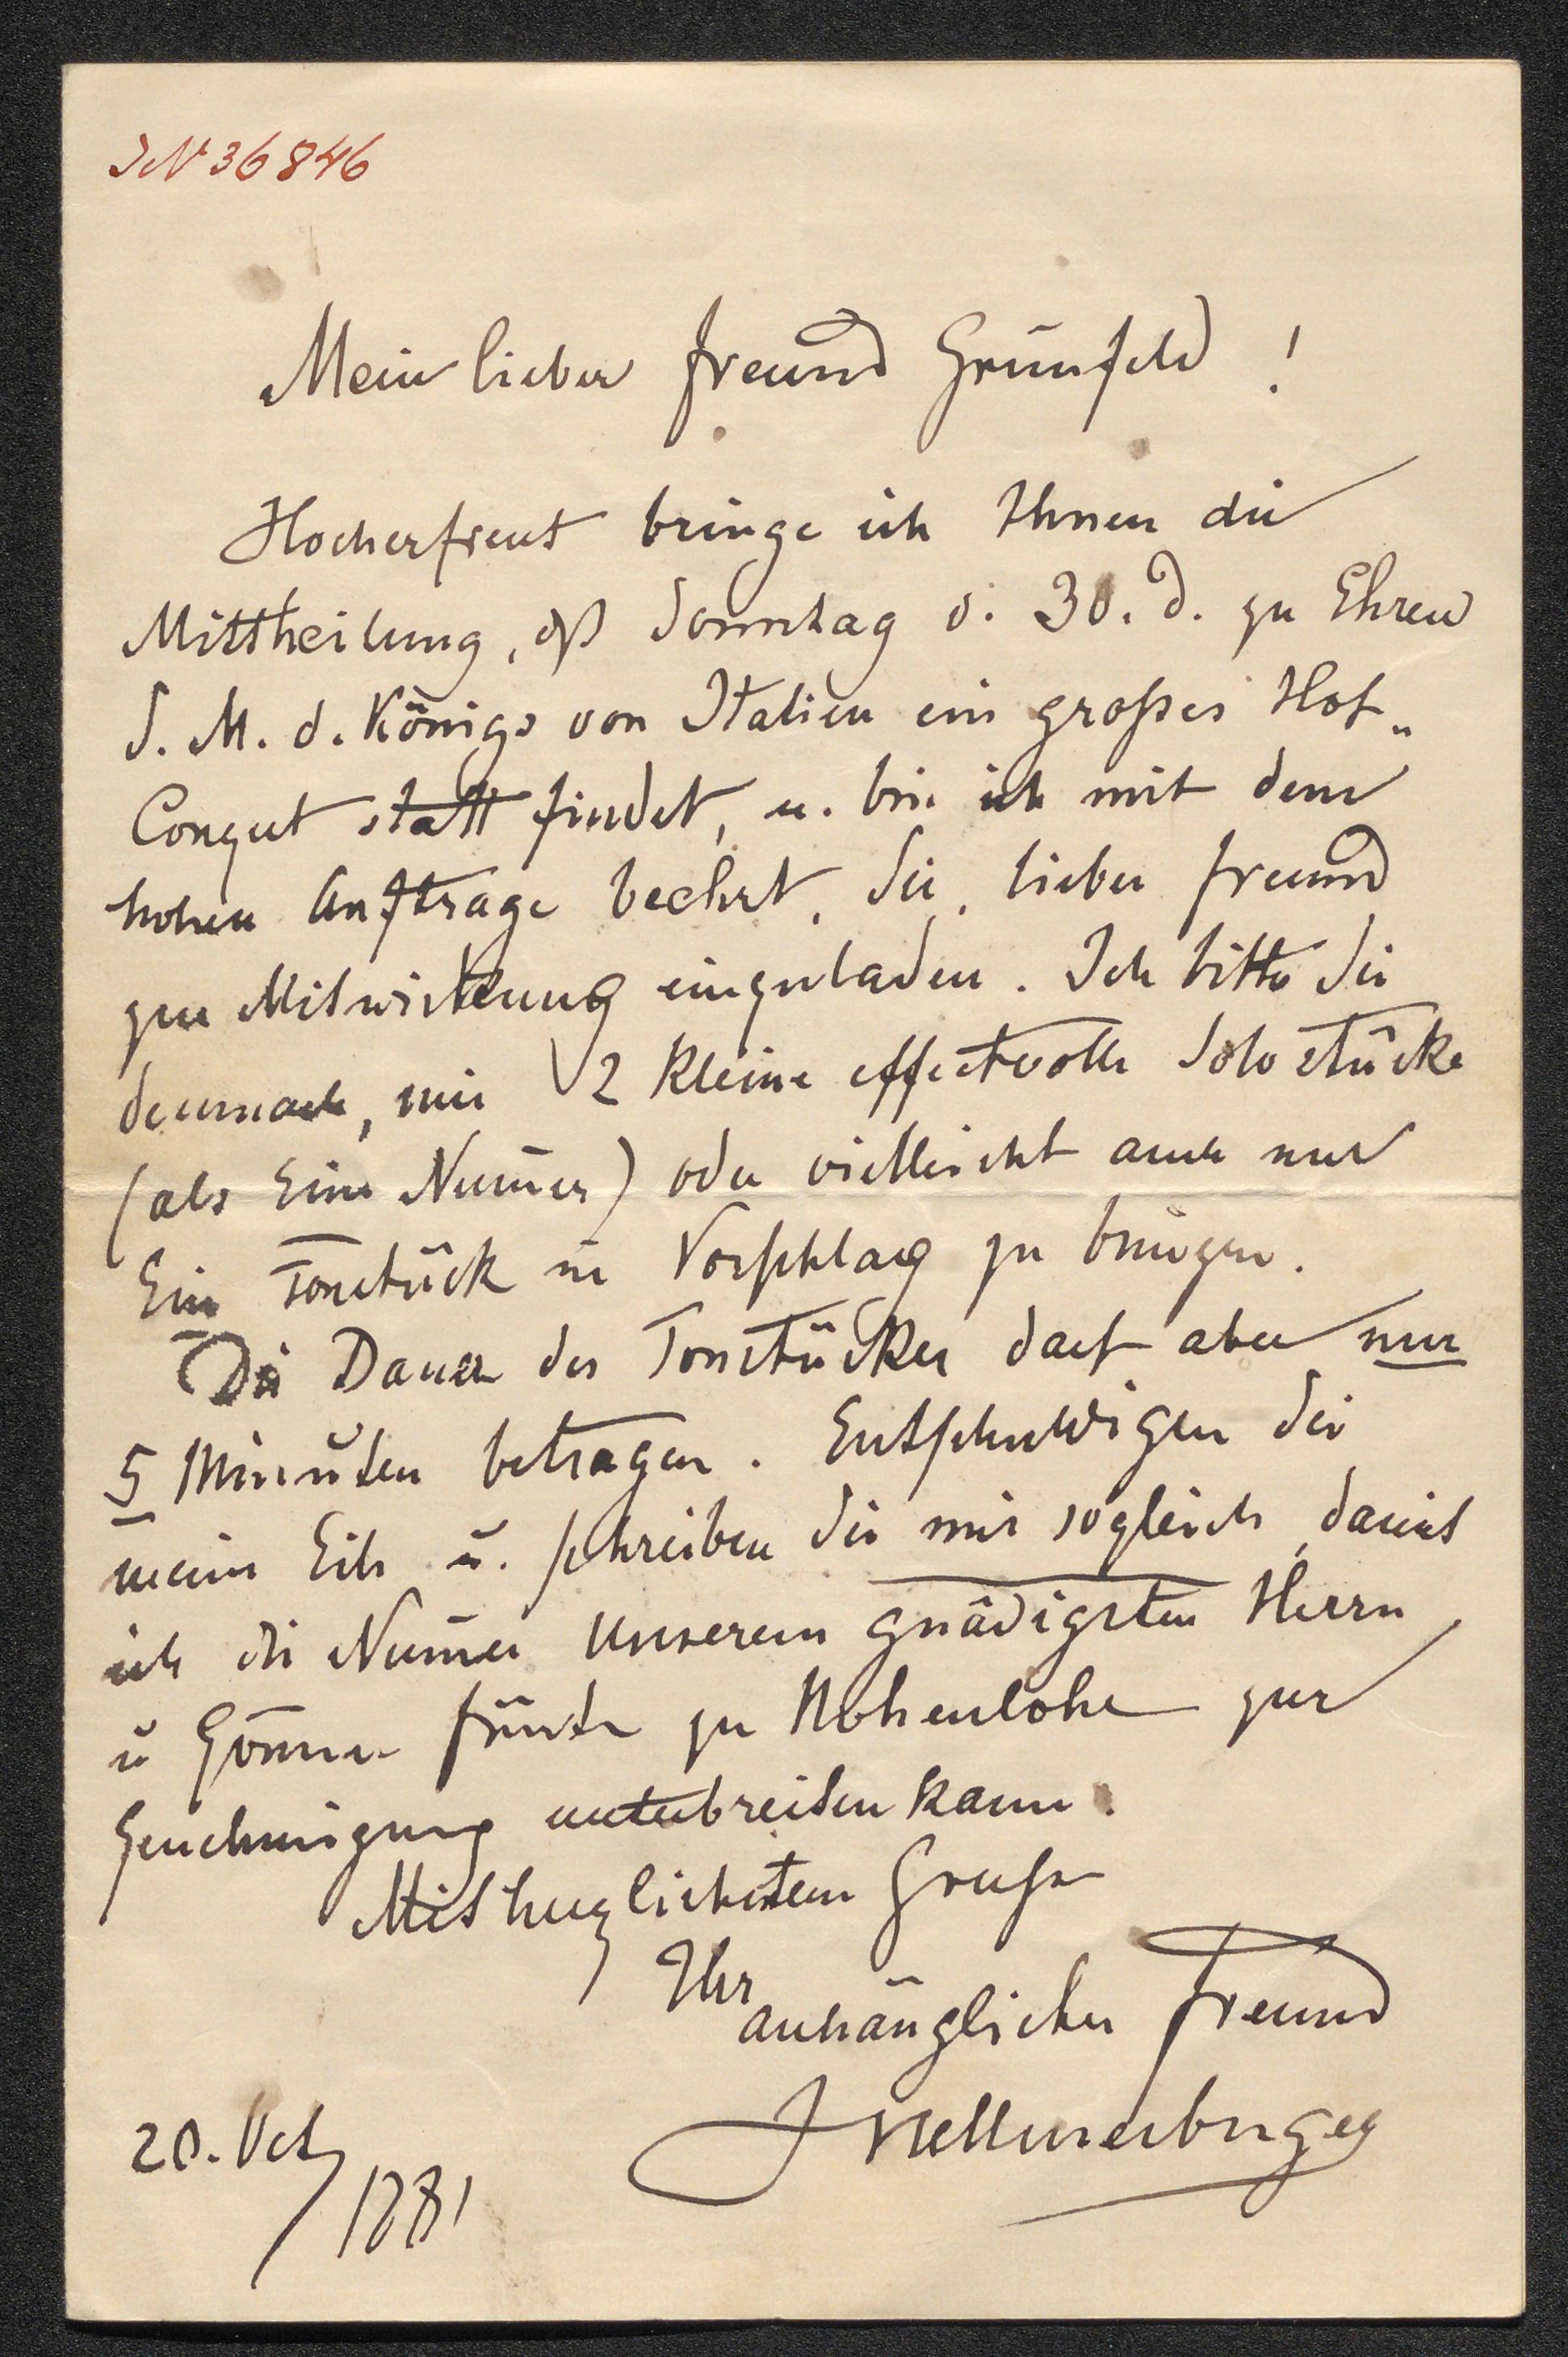 JN 36846
Mein lieber Freund Grünfeld !
Hocherfreut bringe ich Ihnen die
Mittheilung, dß Sonntag d. 30. d. zu Ehren
S. M. d. Königs von Italien ein großes Hof„
Conzert statt findet, u. bin ich mit dem
hohen Auftrage beehrt, Sie, lieber Freund
zur Mitwirkung einzuladen. Ich bitte Sie
demnach, mir 2 kleine effectvolle Solo stücke
(als Eine Num̄er) oder vielleicht auch nur
Ein Tonstück in Vorschlag zu bringen.
Die Dauer des Tonstückes darf aber nur
5 Minuten betragen. Entschuldigen Sie
meine Eile u. schreiben Sie mir sogleich, damit
ich die Num̄er unserem gnädigsten Herrn
u Gönner Fürst zu Hohenlohe zur
Genehmigung unterbreiten kann.
Mit herzlichstem Gruße
Ihr
anhänglicher Freund
J Hellmesberger
20. Oct
/1881